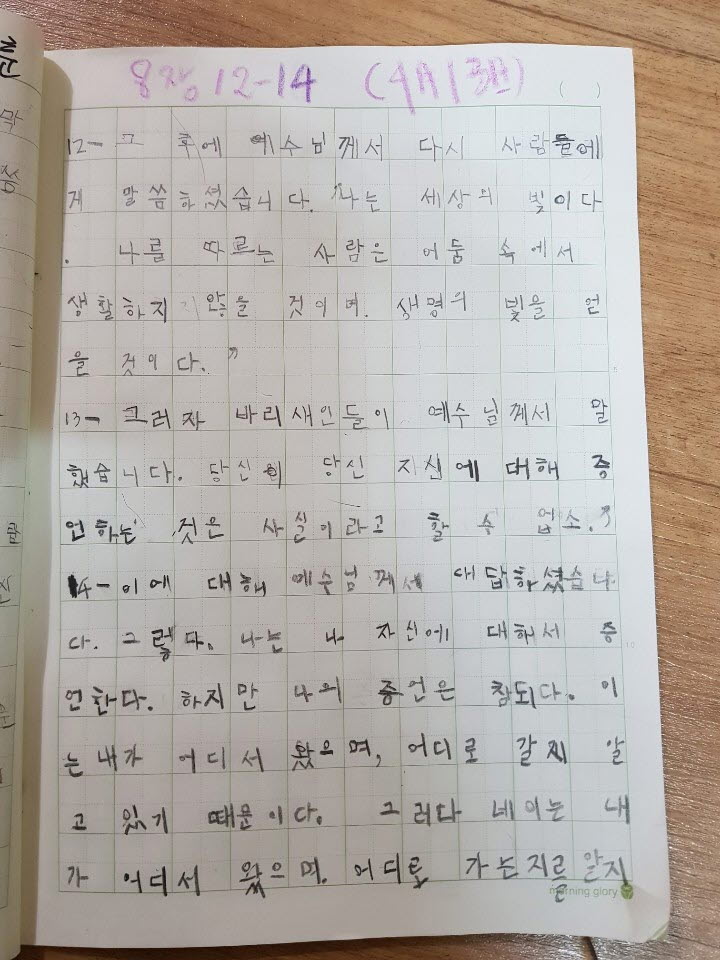 8장 12-14 ( )
12- 그 후에 예수님께서 다시 사람들에
게 말씀하셨습니다. "나는 세상의 빛이다
. 나를 따르는 사람은 어둠 속에서
생활하지 않을 것이며. 생명의 빛을 얻
을 것이다."
13- 그러자 바리새인들이 예수님께서 말
했습니다. 당신의 당신 자신에 대해 증
언하는 것은 사실이라고 할 수 업소."
14- 이에 대해 예수님께서 대답하셨습니
다. 그렇다. 나는 나 자신에 대해서 증
언한다. 하지만 나의 증언은 참되다. 이
는 내가 어디서 왔으며, 어디로 갈지 알
고 있기 때문이다. 그러다 네이는 내
가 어디서 왔으며. 어디로 가는지를 알지
morning glory